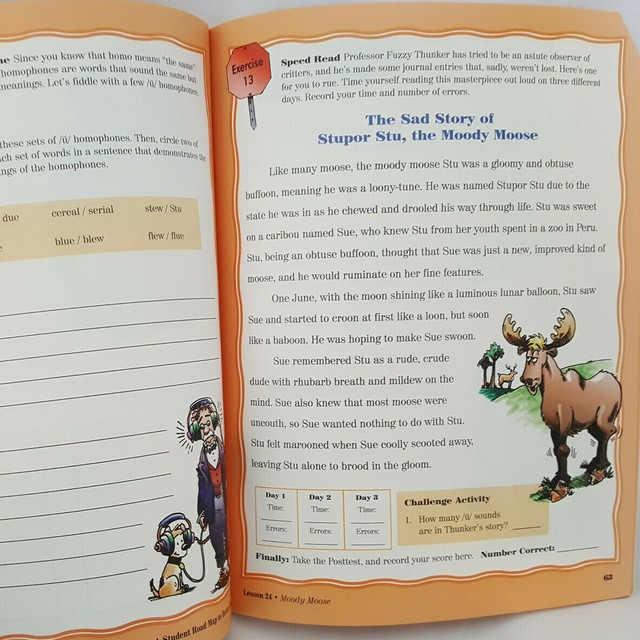 ne Since you know that homo means "the same"
homophones are words that sound the same but
meanings. Let's fiddle with a few /ū/ homophones.
these sets of /ū/ homophones. Then, circle two of
ch set of words in a sentence that demonstrates the
ngs of the homophones.
due cereal / serial stew / Stu
e blue / blew flew / flue
Student Road Map to
Exercise
13
Speed Read Professor Fuzzy Thunker has tried to be an astute observer of
critters, and he's made some journal entries that, sadly, weren't lost. Here's one
for you to rue. Time yourself reading this masterpiece out loud on three different
days. Record your time and number of errors.
The Sad Story of
Stupor Stu, the Moody Moose
Like many moose, the moody moose Stu was a gloomy and obtuse
buffoon, meaning he was a loony-tune. He was named Stupor Stu due to the
state he was in as he chewed and drooled his way through life. Stu was sweet
on a caribou named Sue, who knew Stu from her youth spent in a zoo in Peru.
Stu, being an obtuse buffoon, thought that Sue was just a new, improved kind of
moose, and he would ruminate on her fine features.
One June, with the moon shining like a luminous lunar balloon, Stu saw
Sue and started to croon at first like a loon, but soon
like a baboon. He was hoping to make Sue swoon.
Sue remembered Stu as a rude, crude
dude with rhubarb breath and mildew on the
mind. Sue also knew that most moose were
uncouth, so Sue wanted nothing to do with Stu.
Stu felt marooned when Sue coolly scooted away,
leaving Stu alone to brood in the gloom.
Day 1 Day 2 Day 3
Time: Time: Time:
Errors: Errors: Errors:
Challenge Activity
1. How many /ū/ sounds
are in Thunker's story?
Finally: Take the Posttest, and record your score here. Number Correct:
63
Lesson 24 • Moody Moose